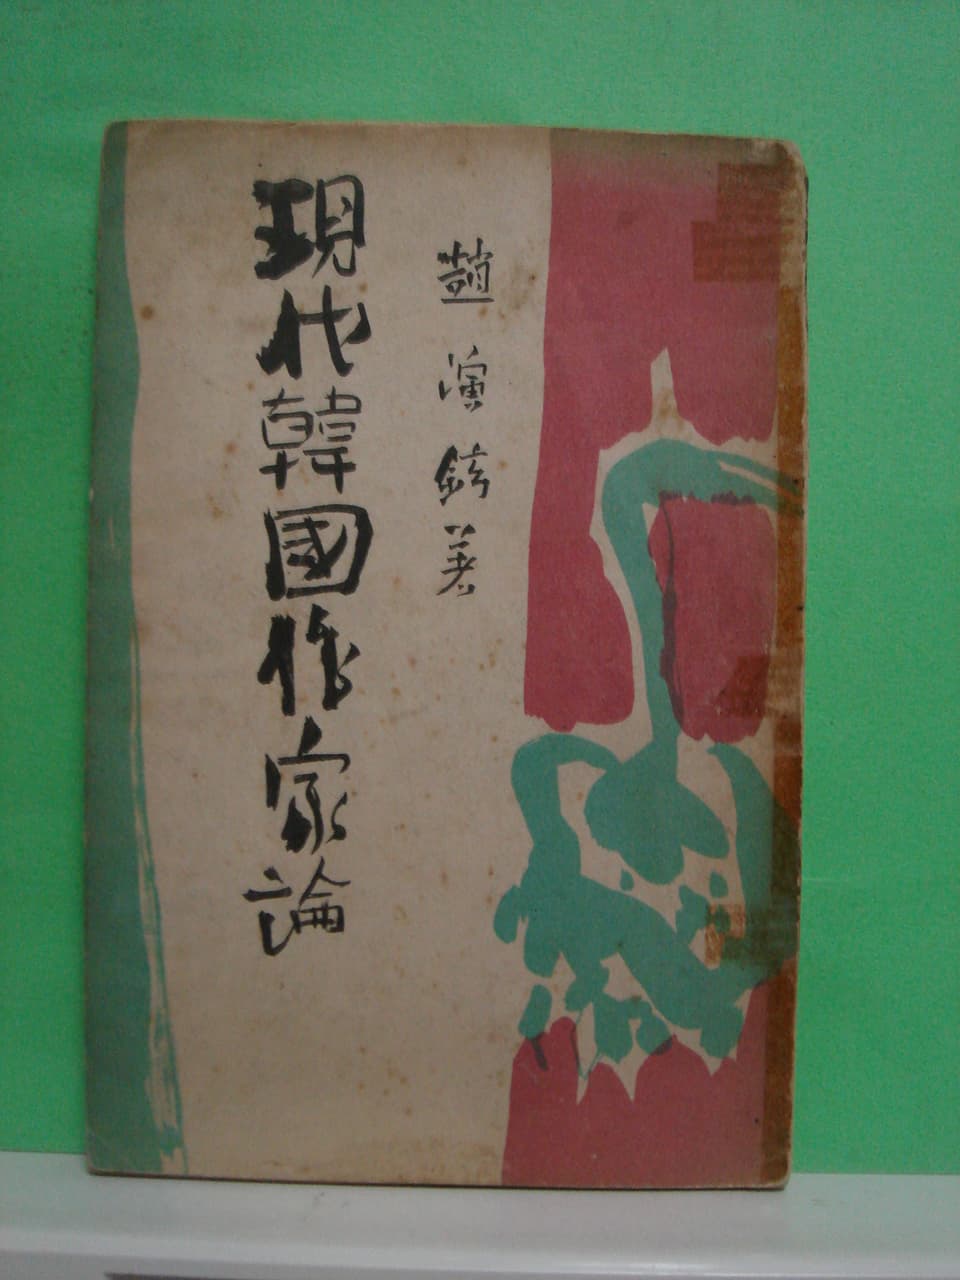 趙演鉉著
現代韓國作家論